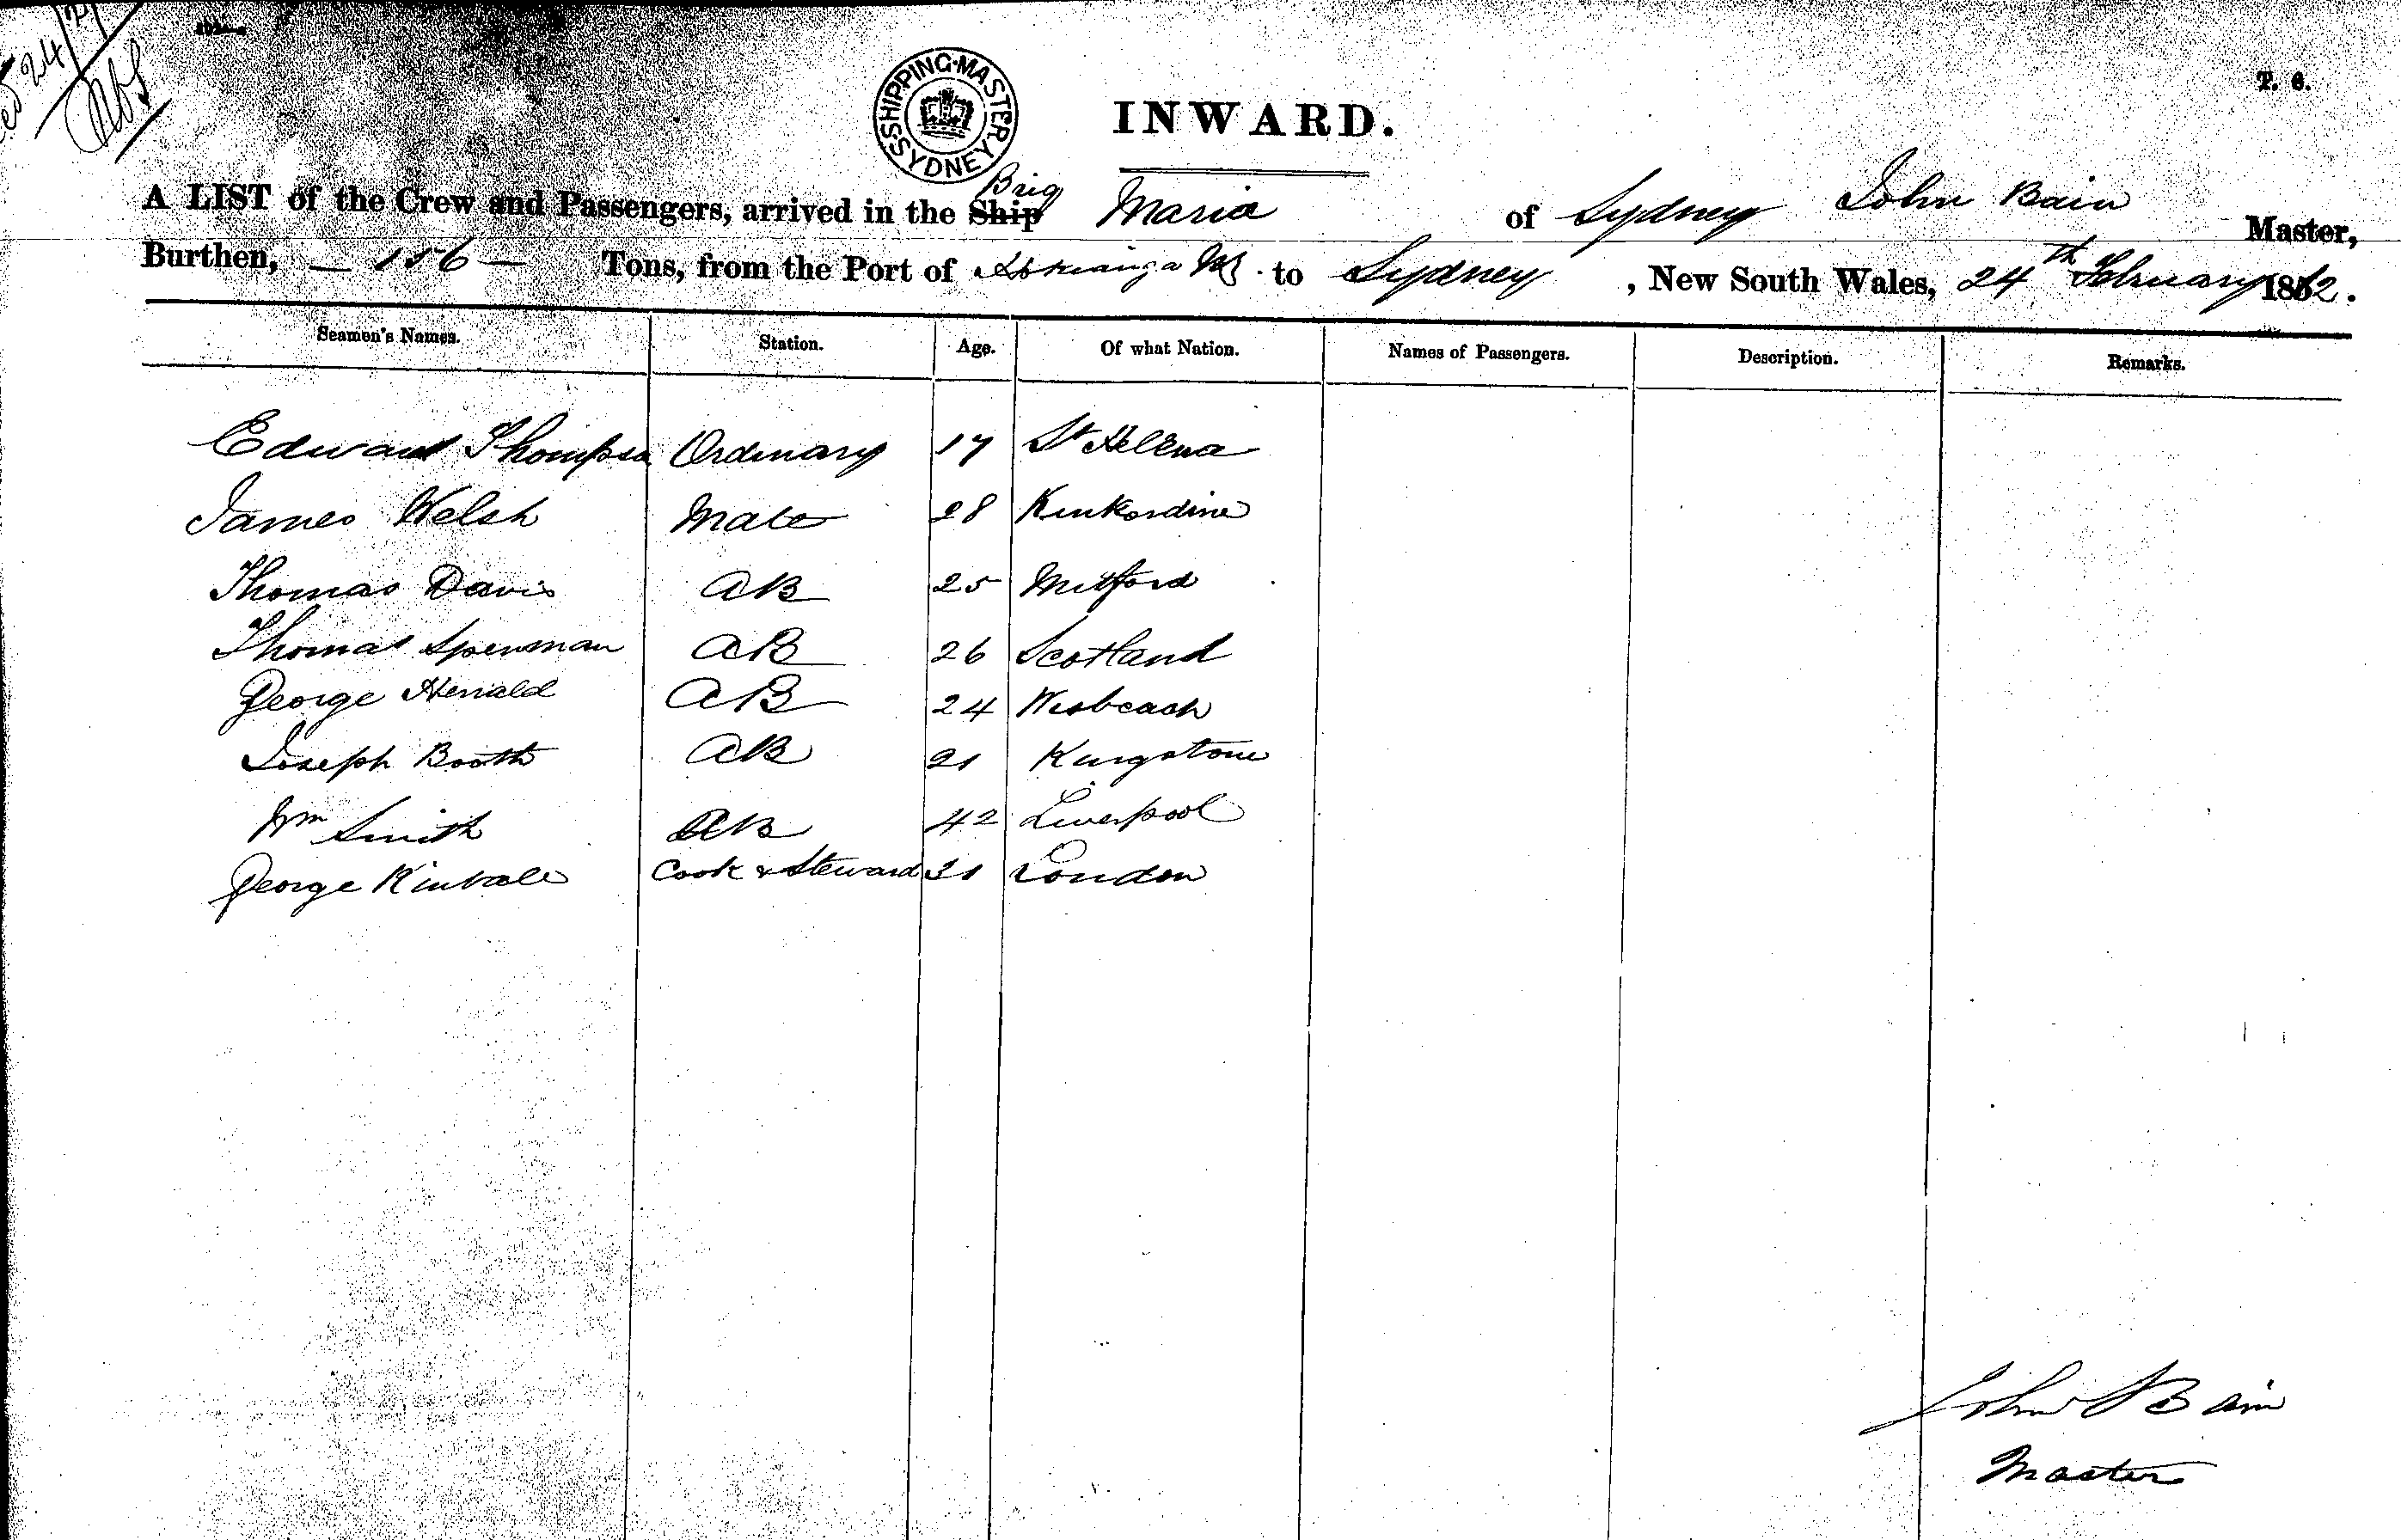 24
SHIPPING·MASTER·SYDNEY
INWARD.
T. 6.
Brig
A LIST of the Crew and Passengers, arrived in the Ship Maria of Sydney John Bain Master,
Burthen, — 156 — Tons, from the Port of Hokianga NZ. to Sydney, New South Wales, 24th February 1862.
Seamen's Names. Station. Age. Of what Nation. Names of Passengers. Description. Remarks.
Edward Thompson Ordinary 17 St Helena
James Welsh Mate 28 Kinkardine
Thomas Davis AB 25 Mitford
Thomas Spenman AB 26 Scotland
George Herrald AB 24 Wisbeach
Joseph Booth AB 21 Kingstone
Wm Smith AB 42 Liverpool
George Cook & Steward 31 London
John Bain
Master